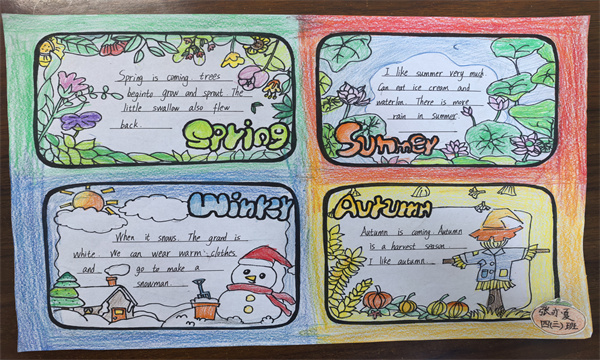 Spring is coming trees
beginto grow and sprout The
little swallow also flew
back
Spring
I like summer very much
Can eat ice cream and
waterlon. There is more
rain in summer.
Summer
Winter
When it snows. The grand is
white. We can wear warm clothes
and go to make a
snowman
Autumn
Autumn is coming Autumn
is a harvest season
I like autumn
张亦夏
四(三)班